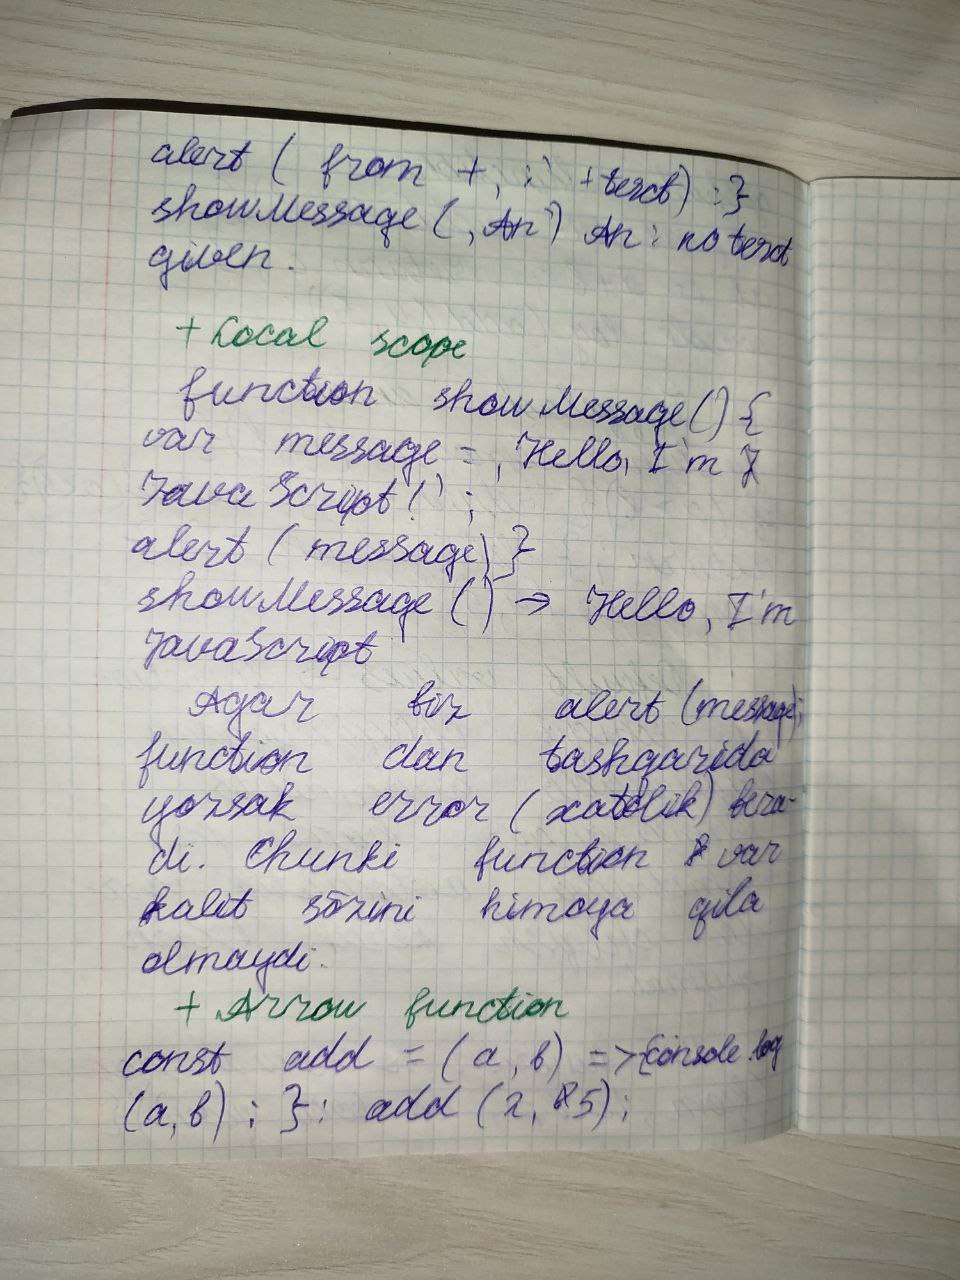 alert ( from +, : ' + text) ; }
showMessage ( , An ' ) An : no text
given.
+ Local scope
function showMessage () {
var message = , Hello, I'm
JavaScript! ' ;
alert ( message) }
showMessage () → Hello, I'm
JavaScript
Agar biz alert (message);
function dan tashqarida
yozsak error (xatolik) bera-
di. Chunki function var
kalit sōzini himoya qila
olmaydi.
+ Arrow function
const add = (a, b) => {console.log
(a, b) ; } ; add (2, 5) ;